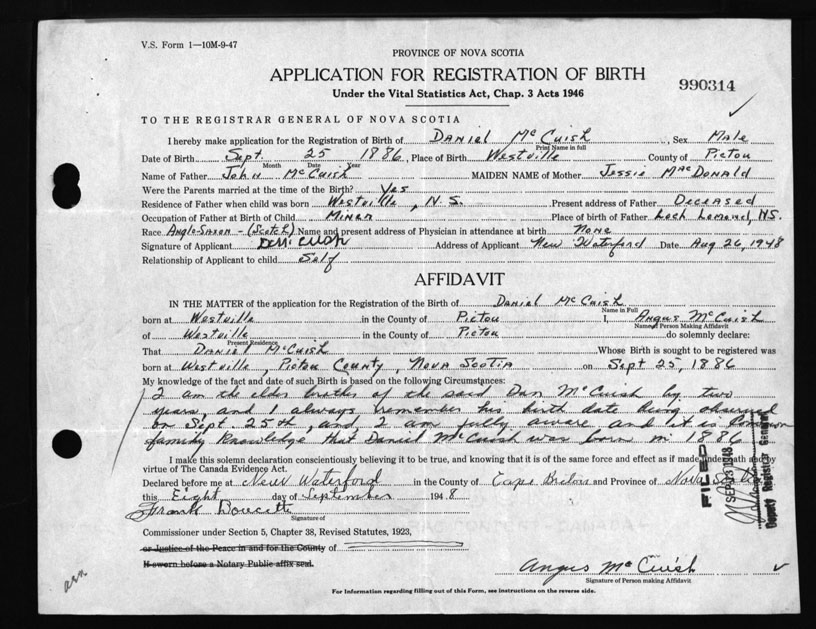 V.S. Form 1—10M-9-47
PROVINCE OF NOVA SCOTIA
APPLICATION FOR REGISTRATION OF BIRTH
990314
Under the Vital Statistics Act, Chap. 3 Acts 1946
TO THE REGISTRAR GENERAL OF NOVA SCOTIA
I hereby make application for the Registration of Birth of Daniel McCuish, Sex Male
Print Name in full
Date of Birth Sept. 25 1886, Place of Birth Westville County of Pictou
Month Date Year
Name of Father John McCuish MAIDEN NAME of Mother Jessie MacDonald
Were the Parents married at the time of Birth? Yes
Residence of Father when child was born Westville, N.S. Present address of Father Deceased
Occupation of Father at Birth of Child Miner Place of birth of Father Loch Lomond, NS.
Race Anglo-Saxon - (Scotch) Name and present address of Physician in attendance at birth None
Signature of Applicant D McCuish Address of Applicant New Waterford Date Aug 26, 1948
Relationship of Applicant to child Self
AFFIDAVIT
IN THE MATTER of the application for the Registration of the Birth of Daniel McCuish
Name in Full
born at Westville in the County of Pictou I, Angus McCuish
Name of Person Making Affidavit
of Westville in the County of Pictou do solemnly declare:
Present Residence
That Daniel McCuish Whose Birth is sought to be registered was
born at Westville, Pictou County, Nova Scotia on Sept 25, 1886
My knowledge of the fact and date of such Birth is based on the following Circumstances:
I am the elder brother of the said Dan McCuish by two
years, and I always remember his birth date being observed
on Sept. 25th, and, I am fully aware and it is common
family knowledge that Daniel McCuish was born in 1886
I make this solemn declaration conscientiously believing it to be true, and knowing that it is of the same force and effect as if made under oath and by
virtue of The Canada Evidence Act.
Declared before me at New Waterford in the County of Cape Breton and Province of Nova Scotia
this Eight day of September 1948
Frank Doucette
Signature of
Commissioner under Section 5, Chapter 38, Revised Statutes, 1923,
or Justice of the Peace in and for the County of
If sworn before a Notary Public affix seal.
Angus McCuish
Signature of Person making Affidavit
For Information regarding filling out of this Form, see instructions on the reverse side.
FILED
SEP 13 1948
Deputy Registrar General